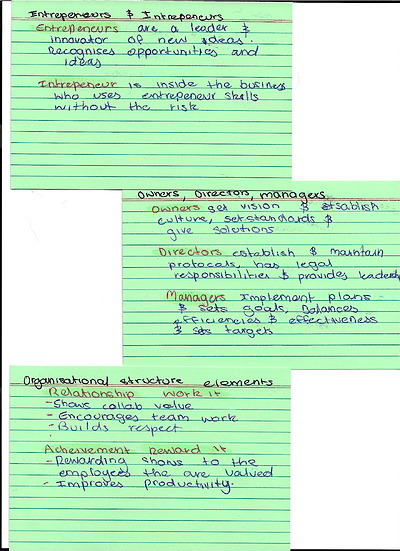 Entrepeneurs & Intrepeneurs
Entrepeneurs are a leader &
innovator of new ideas.
Recognises opportunities and
ideas
Intrepeneur is inside the business
who uses entrepeneur skills
without the risk
Owners, Directors, managers
Owners get vision & establish
culture, set standards &
give solutions
Directors establish & maintain
protocals, has legal
responsibilities & provides leadersh
Managers Implement plans
& sets goals, Balances
efficiencies & effectiveness
& sets targets
Organisational structure elements
Relationship work it
- Shows collab value
- Encourages team work
- Builds respect
Acheivement Reward it
- Rewarding shows to the
employees the are valued
- Improves productivity.